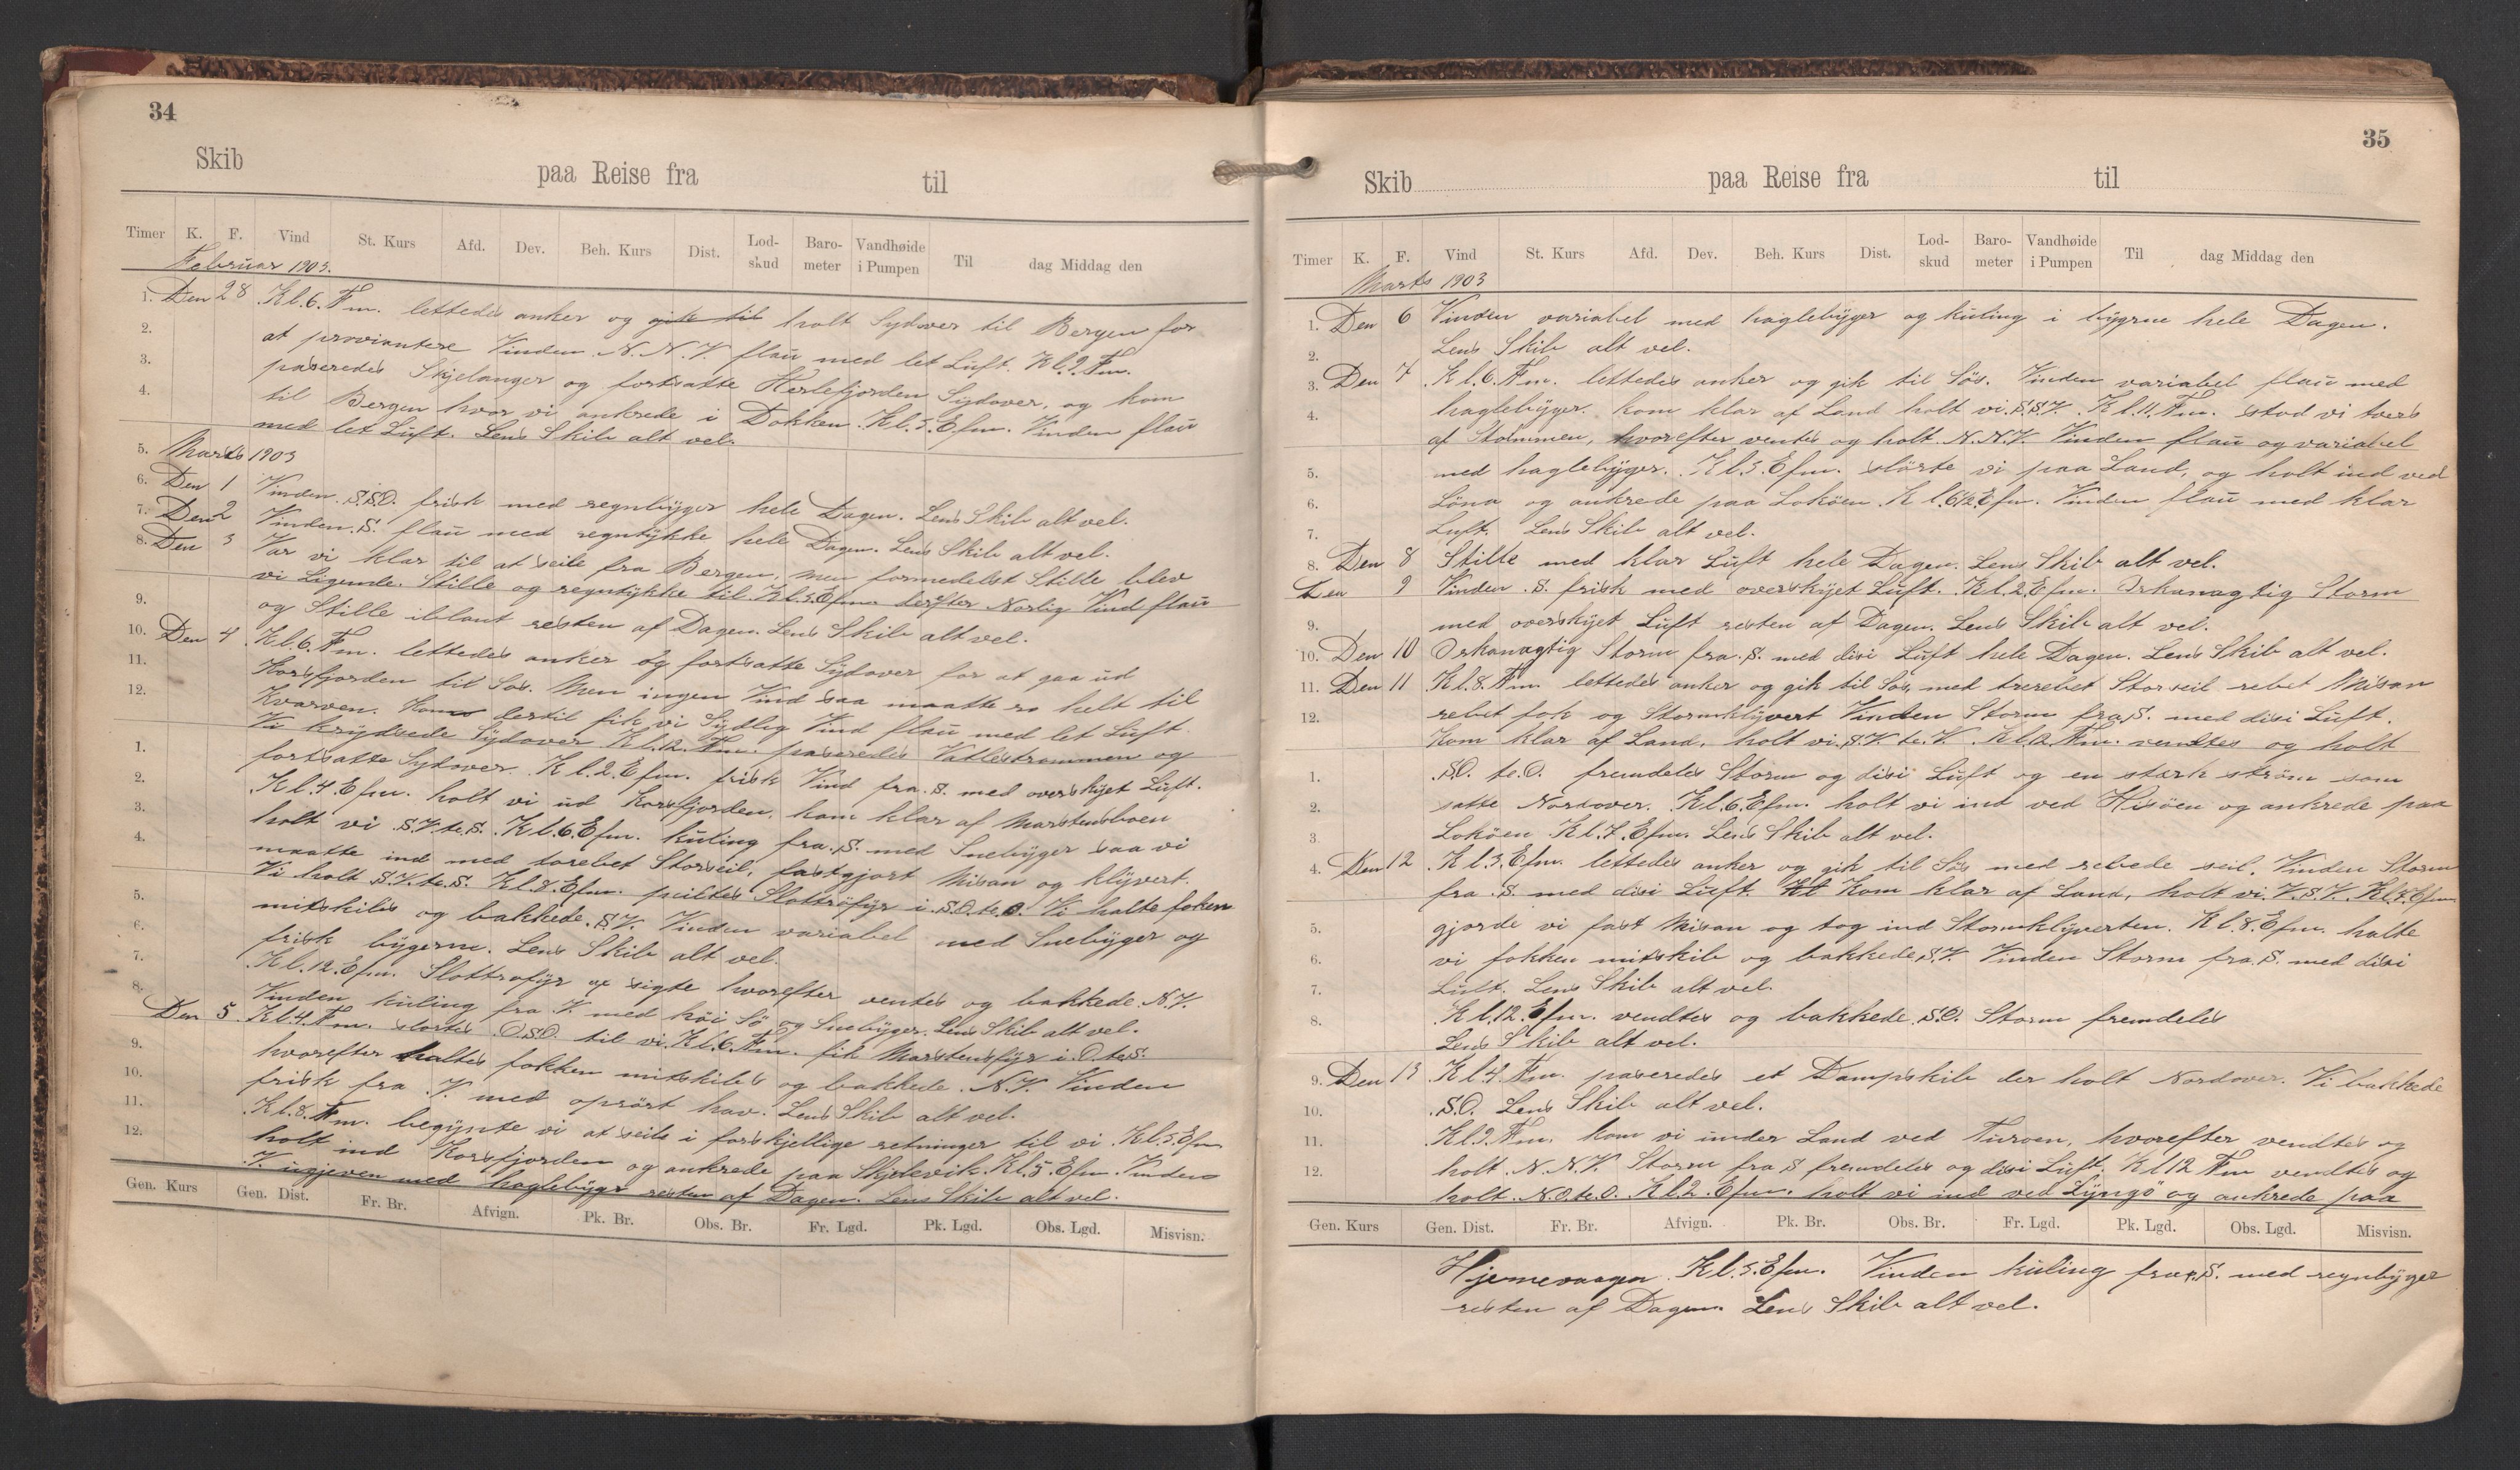 34
Skib paa Reise fra til
Timer K. F. Vind St. Kurs Afd. Dev. Beh. Kurs Dist. Lod-skud Baro-meter Vandhøide i Pumpen Til dag Middag den
Februar 1903.
1. Den 28 Kl. 6. Fm. lettedes anker og gik til holt Sydover til Bergen for
2. at proviantere Vinden N.N.V. flaŭ med let Lŭft. Kl. 9. Fm.
3. paseredes Skjelanger og fortsatte Herlefjorden Sydover, og kom
4. til Bergen hvor vi ankrede i Dokken. Kl. 5. Efm. Vinden flaŭ
med let Lŭft. Lens Skib alt vel.
5. Marts 1903
6. Den 1 Vinden. S.S.O. frisk med regnbÿger hele Dagen. Lens Skib alt vel.
7. Den 2 Vinden. S. flaŭ med regntÿkke hele Dagen. Lens Skib alt vel.
8. Den 3 Var vi klar til at seile fra Bergen, men formedelst Stille blev
vi Ligende. Stille og regntÿkke til. Kl. 3. Efm. derfter Norlig Vind flaŭ
9. og Stille iblant resten af Dagen. Lens Skib alt vel.
10. Den 4 Kl. 6. Fm. lettedes anker og fortsatte Sÿdover for at gaa ŭd
11. Korsfjorden til Søs. Men ingen Vind saa maatte ro helt til
12. Kvarven. Kom dertil fik vi Sÿdlig Vind flaŭ med let Lŭft.
Vi krÿdsede Sÿdover Kl. 12. Fm. paseredes Vatlestrømmen og
1. fortsatte Sydover. Kl. 2. Efm. frisk Vind fra. S. med overskÿet Lŭft.
2. Kl. 4 Efm. holt vi ŭd Korsfjorden, kom klar af Marstensboen
3. holt vi S.V. te. S. Kl. 6. Efm. kŭling fra. S. med Snebÿger saa vi
4. maatte ind med torebet Storseil, fastgjort Misan og klÿvert.
Vi holt S.V. te. S. Kl. 8. Efm. peiltes Slottröfÿr i S.O. te. O. Vi halte foken
5. mitskibs og bakkede. S.V. Vinden variabel med Snebÿger og
6. frisk bÿgerne. Lens Skib alt vel.
7. Kl. 12. Efm. Slottröfÿr af sigte hvorefter ventes og bakkede. N.V.
8. Vinden kŭling fra V. med höi Sö og Snebÿger. Lens Skib alt vel.
Den 5 Kl. 4. Fm. slörtes O.S.O. til vi. Kl. 6. Fm. fik Marstensfÿr i. O. te. S.
9. hvorefter haltes fokken mitskibs og bakkede. N.V. Vinden
10. frisk fra V. med oprört hav. Lens Skib alt vel.
11. Kl. 8. Fm. begÿnte vi at seile i forskjellige retninger til vi Kl. 3. Efm
12. holt ind Korsfjorden og ankrede paa Skjelevik. Kl. 5. Efm. Vinden
V. ŭgjeven med haglebÿge resten af Dagen. Lens Skib alt vel.
Gen. Kurs Gen. Dist. Fr. Br. Afvign. Pk. Br. Obs. Br. Fr. Lgd. Pk. Lgd. Obs. Lgd. Misvisn.
35
Skib paa Reise fra til
Timer K. F. Vind St. Kurs Afd. Dev. Beh. Kurs Dist. Lod-skud Baro-meter Vandhøide i Pumpen Til dag Middag den
Marts 1903
1. Den 6 Vinden variabel med haglebÿger og kŭling i bÿgrne hele Dagen.
2. Lens Skib alt vel.
3. Den 7 Kl. 6. Fm. lettedes anker og gik til Sös. Vinden variabel flaŭ med
4. haglebÿger. kom klar af Land holt vi. S.S.V. Kl. 11. Fm. stod vi tvers
af Stolmmen, hvorefter ventes og holt. N.N.V. Vinden flaŭ og variabel
5. med haglebÿger. Kl. 3. Efm. slörte vi paa Land, og holt ind ved
6. Löna og ankrede paa Loköen. Kl. 6 1/2 Efm. Vinden flaŭ med klar
7. Luft. Lens Skib alt vel.
8. Den 8 Stille med klar Lŭft hele Dagen. Lens Skib alt vel.
Den 9 Vinden. S. frisk med overskÿet Lŭft. Kl. 2. Efm. Orkanagtig Storm
9. med overskÿet Lŭft resten af Dagen. Lens Skib alt vel.
10. Den 10 Orkanagtig Storm fra. S. med disi Lŭft hele Dagen. Lens Skib alt vel.
11. Den 11 Kl. 8. Fm. lettedes anker og gik til Sös, med trerebet Storseil rebet Misan
12. rebet fok og Stormklÿvert Vinden Storm fra. S. med disi Lŭft.
Kom klar af Land, holt vi. S.V. te. V. Kl. 12. Fm. vendtes og holt
1. S.O. te. O. fremdeles Storm og disi Lŭft og en stærk ström som
2. satte Nordover. Kl. 6. Efm. holt vi ind ved Hisöen og ankrede paa
3. Loköen Kl. 7. Efm. Lens Skib alt vel.
4. Den 12 Kl. 3. Efm. lettedes anker og gik til Sös med rebede seil. Vinden Storm
fra. S. med disi Lŭft. Kl Kom klar af Land, holt vi. V.S.V. Kl. 7. Efm
5. gjorde vi fast Misan og tog ind Stormklÿverten. Kl. 8. Efm. halte
6. vi fokken mitskib og bakkede. S.V. Vinden Storm fra. S. med disi
7. Lŭft. Lens Skib alt vel.
8. Kl. 12. Efm. vendtes og bakkede. S.O. Storm fremdeles
Lens Skib alt vel.
9. Den 13 Kl. 4. Fm. paseredes et Dampskib der holt Nordover. Vi bakkede
10. S.O. Lens Skib alt vel.
11. Kl. 9. Fm. kom vi ŭnder Land ved Tŭroen, hvorefter vendtes og
12. holt. N.N.V. Storm fra S fremdeles og disi Lŭft. Kl 12 Fm vendtes og
holt. N.O. te. O. Kl. 2. Efm. holt vi ind ved Lÿngö og ankrede paa
Gen. Kurs Gen. Dist. Fr. Br. Afvign. Pk. Br. Obs. Br. Fr. Lgd. Pk. Lgd. Obs. Lgd. Misvisn.
Hjemevaagen. Kl. 3. Efm. Vinden kŭling fra. S. med regnbÿger
resten af Dagen. Lens Skib alt vel.